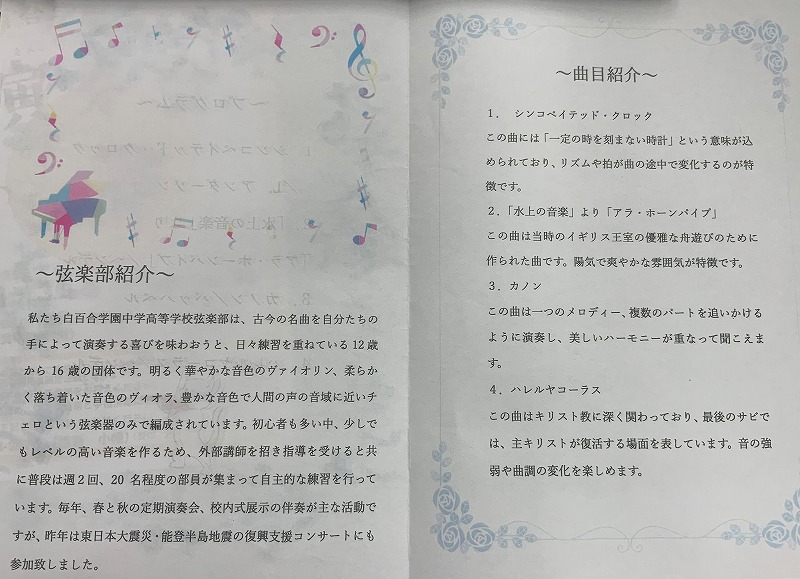 ～弦楽部紹介～
私たち白百合学園中学高等学校弦楽部は、古今の名曲を自分たちの
手によって演奏する喜びを味わおうと、日々練習を重ねている 12 歳
から 16 歳の団体です。明るく華やかな音色のヴァイオリン、柔らか
く落ち着いた音色のヴィオラ、豊かな音色で人間の声の音域に近いチ
ェロという弦楽器のみで編成されています。初心者も多い中、少しで
もレベルの高い音楽を作るため、外部講師を招き指導を受けると共
に普段は週２回、20 名程度の部員が集まって自主的な練習を行って
います。毎年、春と秋の定期演奏会、校内式展示の伴奏が主な活動で
すが、昨年は東日本大震災・能登半島地震の復興支援コンサートにも
参加致しました。
～曲目紹介～
１． シンコペイテッド・クロック
この曲には「一定の時を刻まない時計」という意味が込
められており、リズムや拍が曲の途中で変化するのが特
徴です。
２．「水上の音楽」より「アラ・ホーンパイプ」
この曲は当時のイギリス王室の優雅な舟遊びのために
作られた曲です。陽気で爽やかな雰囲気が特徴です。
３．カノン
この曲は一つのメロディー、複数のパートを追いかける
ように演奏し、美しいハーモニーが重なって聞こえま
す。
４．ハレルヤコーラス
この曲はキリスト教に深く関わっており、最後のサビで
は、主キリストが復活する場面を表しています。音の強
弱や曲調の変化を楽しめます。